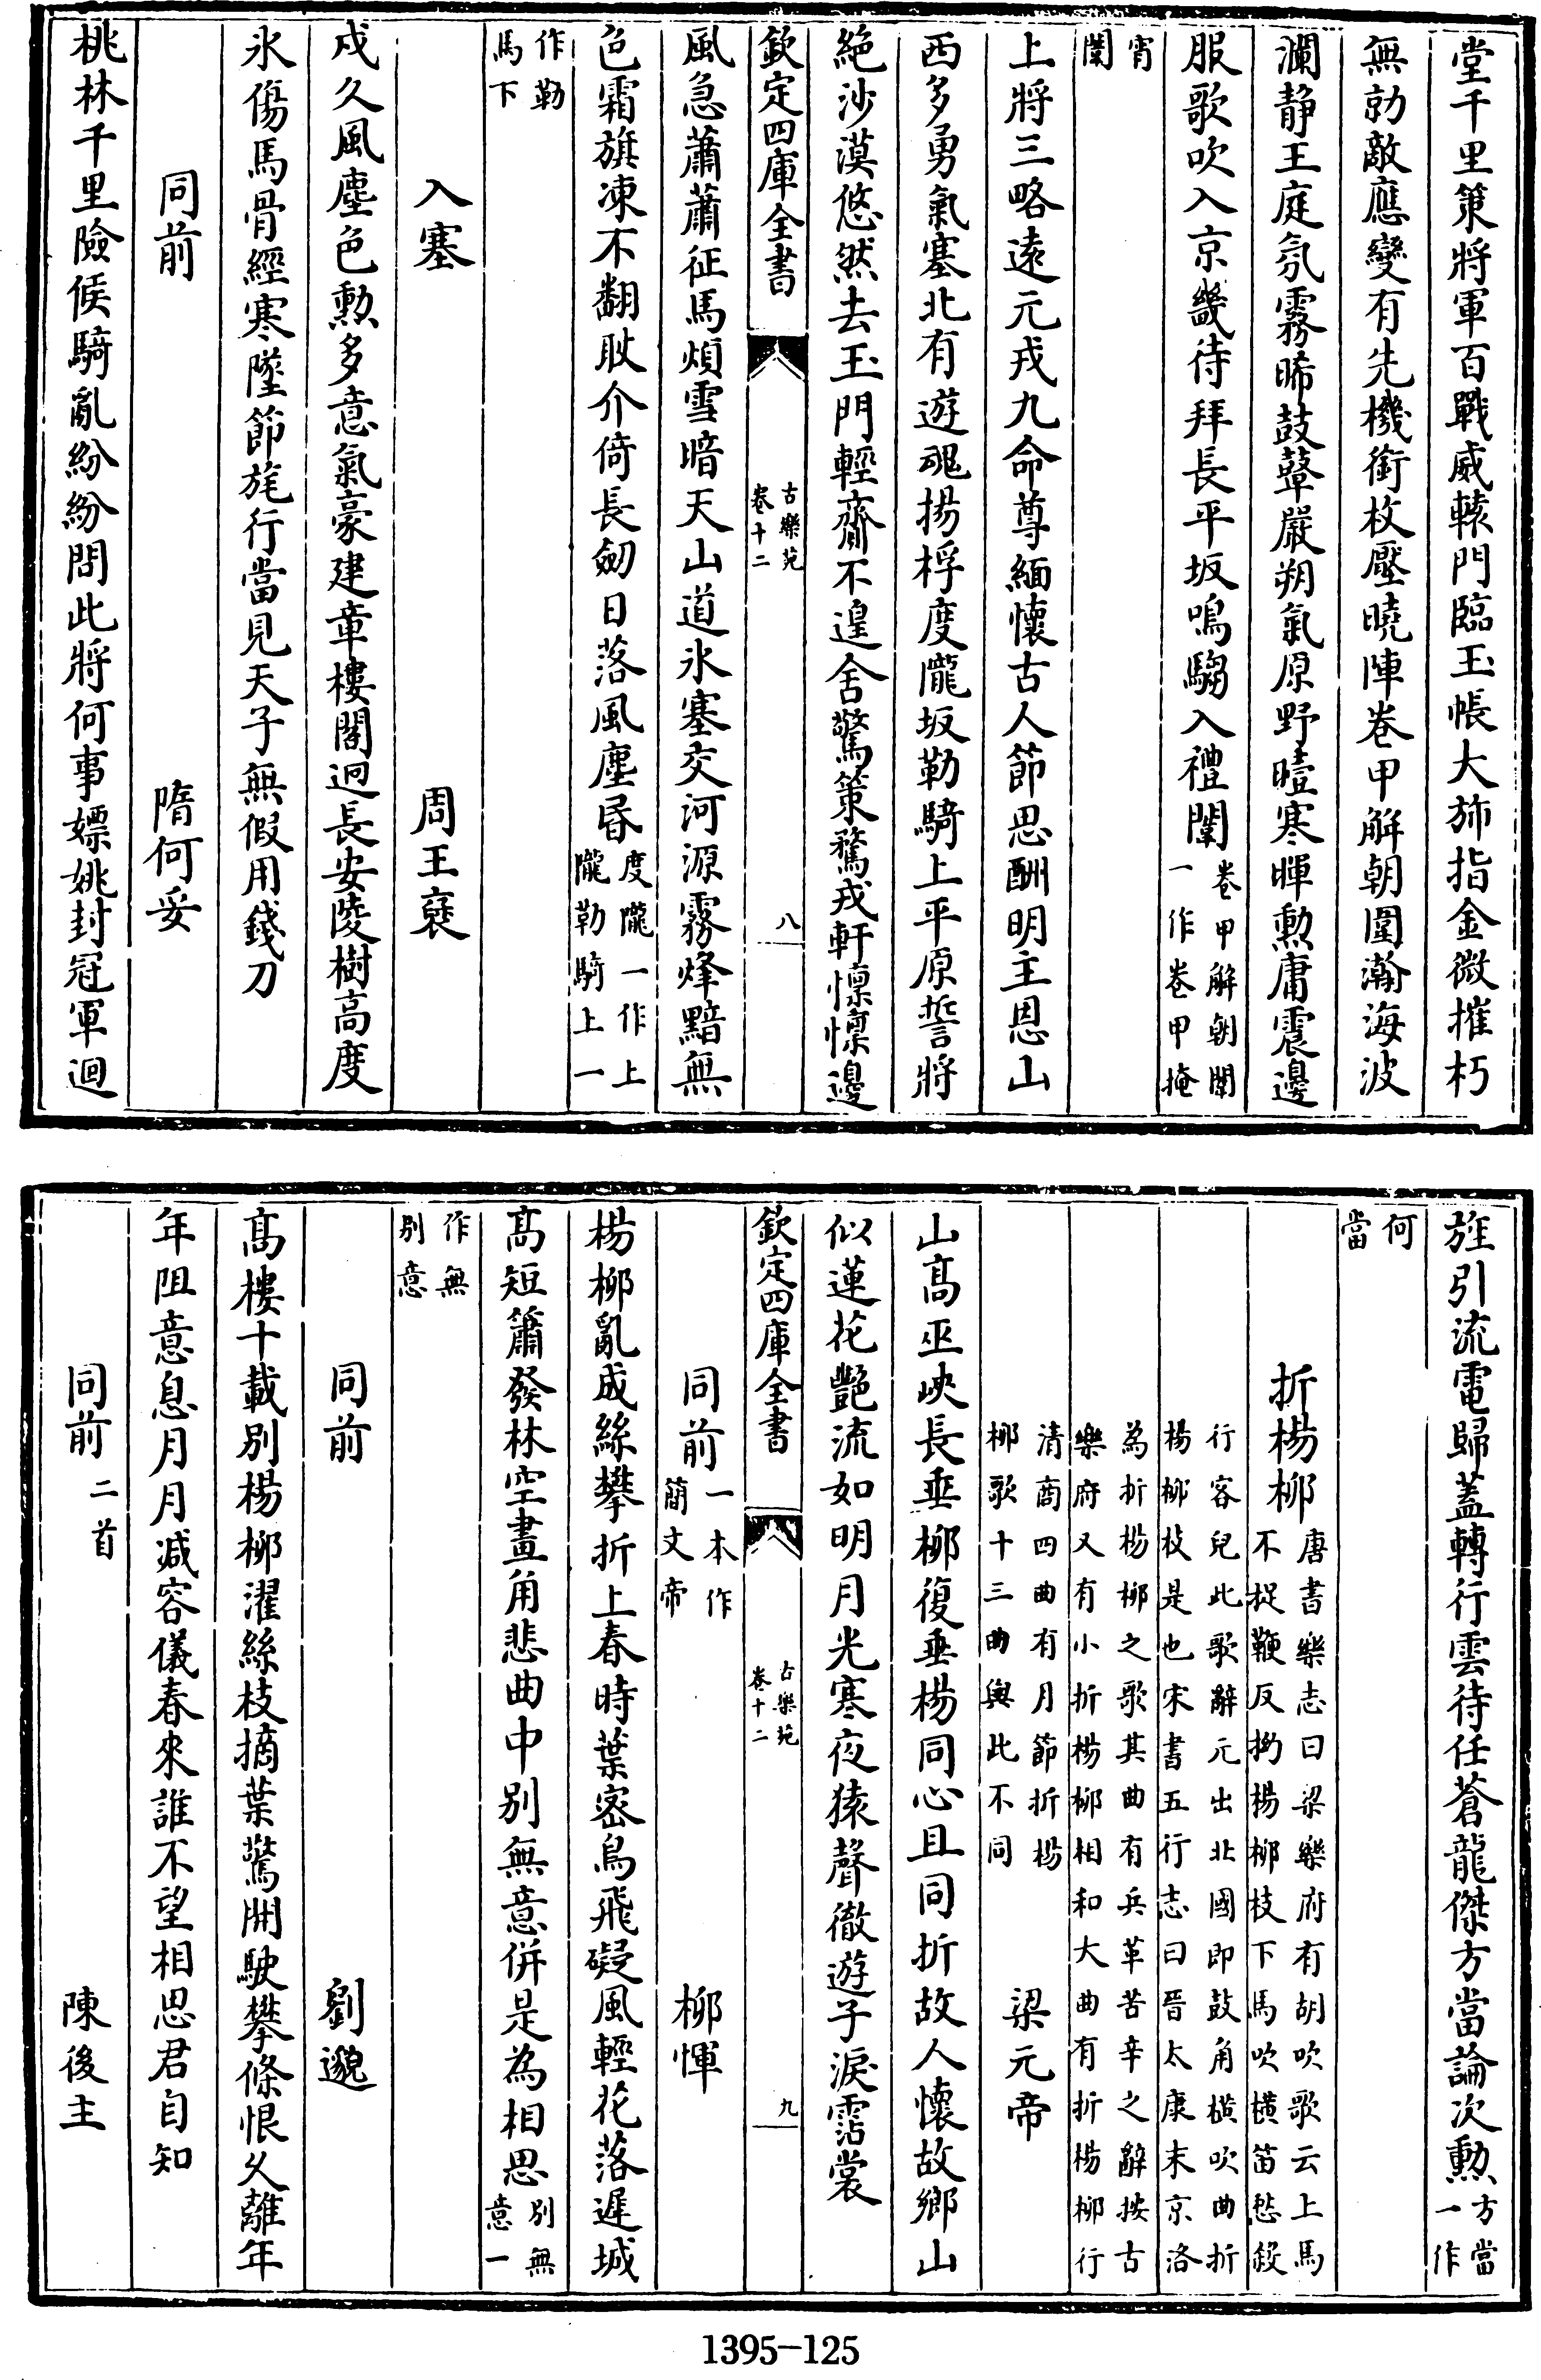 堂千里策將軍百戰威轅門臨玉帳大旆指金微摧朽
無勍敵應變有先機銜枚壓曉陣卷甲解朝圍瀚海波
瀾静王庭氛霧晞鼓鼙嚴朔氣原野曀寒暉勲庸震邊
服歌吹入京畿待拜長平坂鳴騶入禮闈卷甲解朝闈
一作卷甲掩
宵
闈
上將三略遠元戎九命尊緬懷古人節思酬明主恩山
西多勇氣塞北有遊魂揚桴度隴坂勒騎上平原誓將
絶沙漠悠然去玉門輕齎不遑舍驚策騖戎軒懍懍邊
欽定四庫全書
古樂苑
卷十二
八
風急蕭蕭征馬煩雪暗天山道氷塞交河源霧烽黯無
色霜旗凍不翻耿介倚長劒日落風塵昬度隴一作上
隴勒騎上一
作勒
馬下
入塞
周王襃
戍久風塵色勲多意氣豪建章樓閣迥長安陵樹高度
氷傷馬骨經寒墜節旄行當見天子無假用錢刀
同前
隋何妥
桃林千里險候騎亂紛紛問此將何事嫖姚封冠軍迴
旌引流電歸蓋轉行雲待任蒼龍傑方當論次勲方當
一作
何
當
折楊柳唐書樂志曰梁樂府有胡吹歌云上馬
不捉鞭反拗楊柳枝下馬吹横笛愁殺
行客兒此歌辭元出北國即鼓角横吹曲折
楊柳枝是也宋書五行志曰晉太康末京洛
為折楊柳之歌其曲有兵革苦辛之辭按古
樂府又有小折楊柳相和大曲有折楊柳行
清商四曲有月節折楊
柳歌十三曲與此不同
梁元帝
山髙巫峽長垂柳復垂楊同心且同折故人懷故鄉山
似蓮花艷流如明月光寒夜猿聲徹遊子淚霑裳
欽定四庫全書
古樂苑
卷十二
九
同前一本作
簡文帝
柳惲
楊柳亂成絲攀折上春時葉密鳥飛礙風輕花落遲城
髙短簫發林空畫角悲曲中別無意併是為相思別無
意一
作無
別意
同前
劉邈
髙樓十載別楊柳濯絲枝摘葉驚開駛攀條恨久離年
年阻意息月月减容儀春來誰不望相思君自知
同前二首
陳後主
1395-125